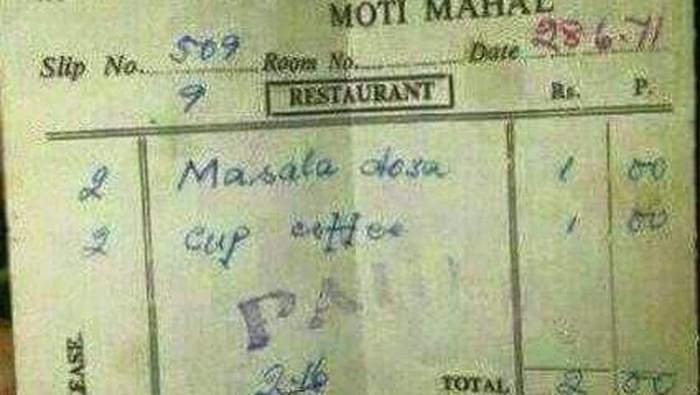 MOTI MAHAL
Slip No. 509 Room No. Date 28 6-71
9 RESTAURANT Rs. P.
2 Masala dosa 1 00
2 cup coffee 1 00
PAID
EASE
2.16 TOTAL 2 00